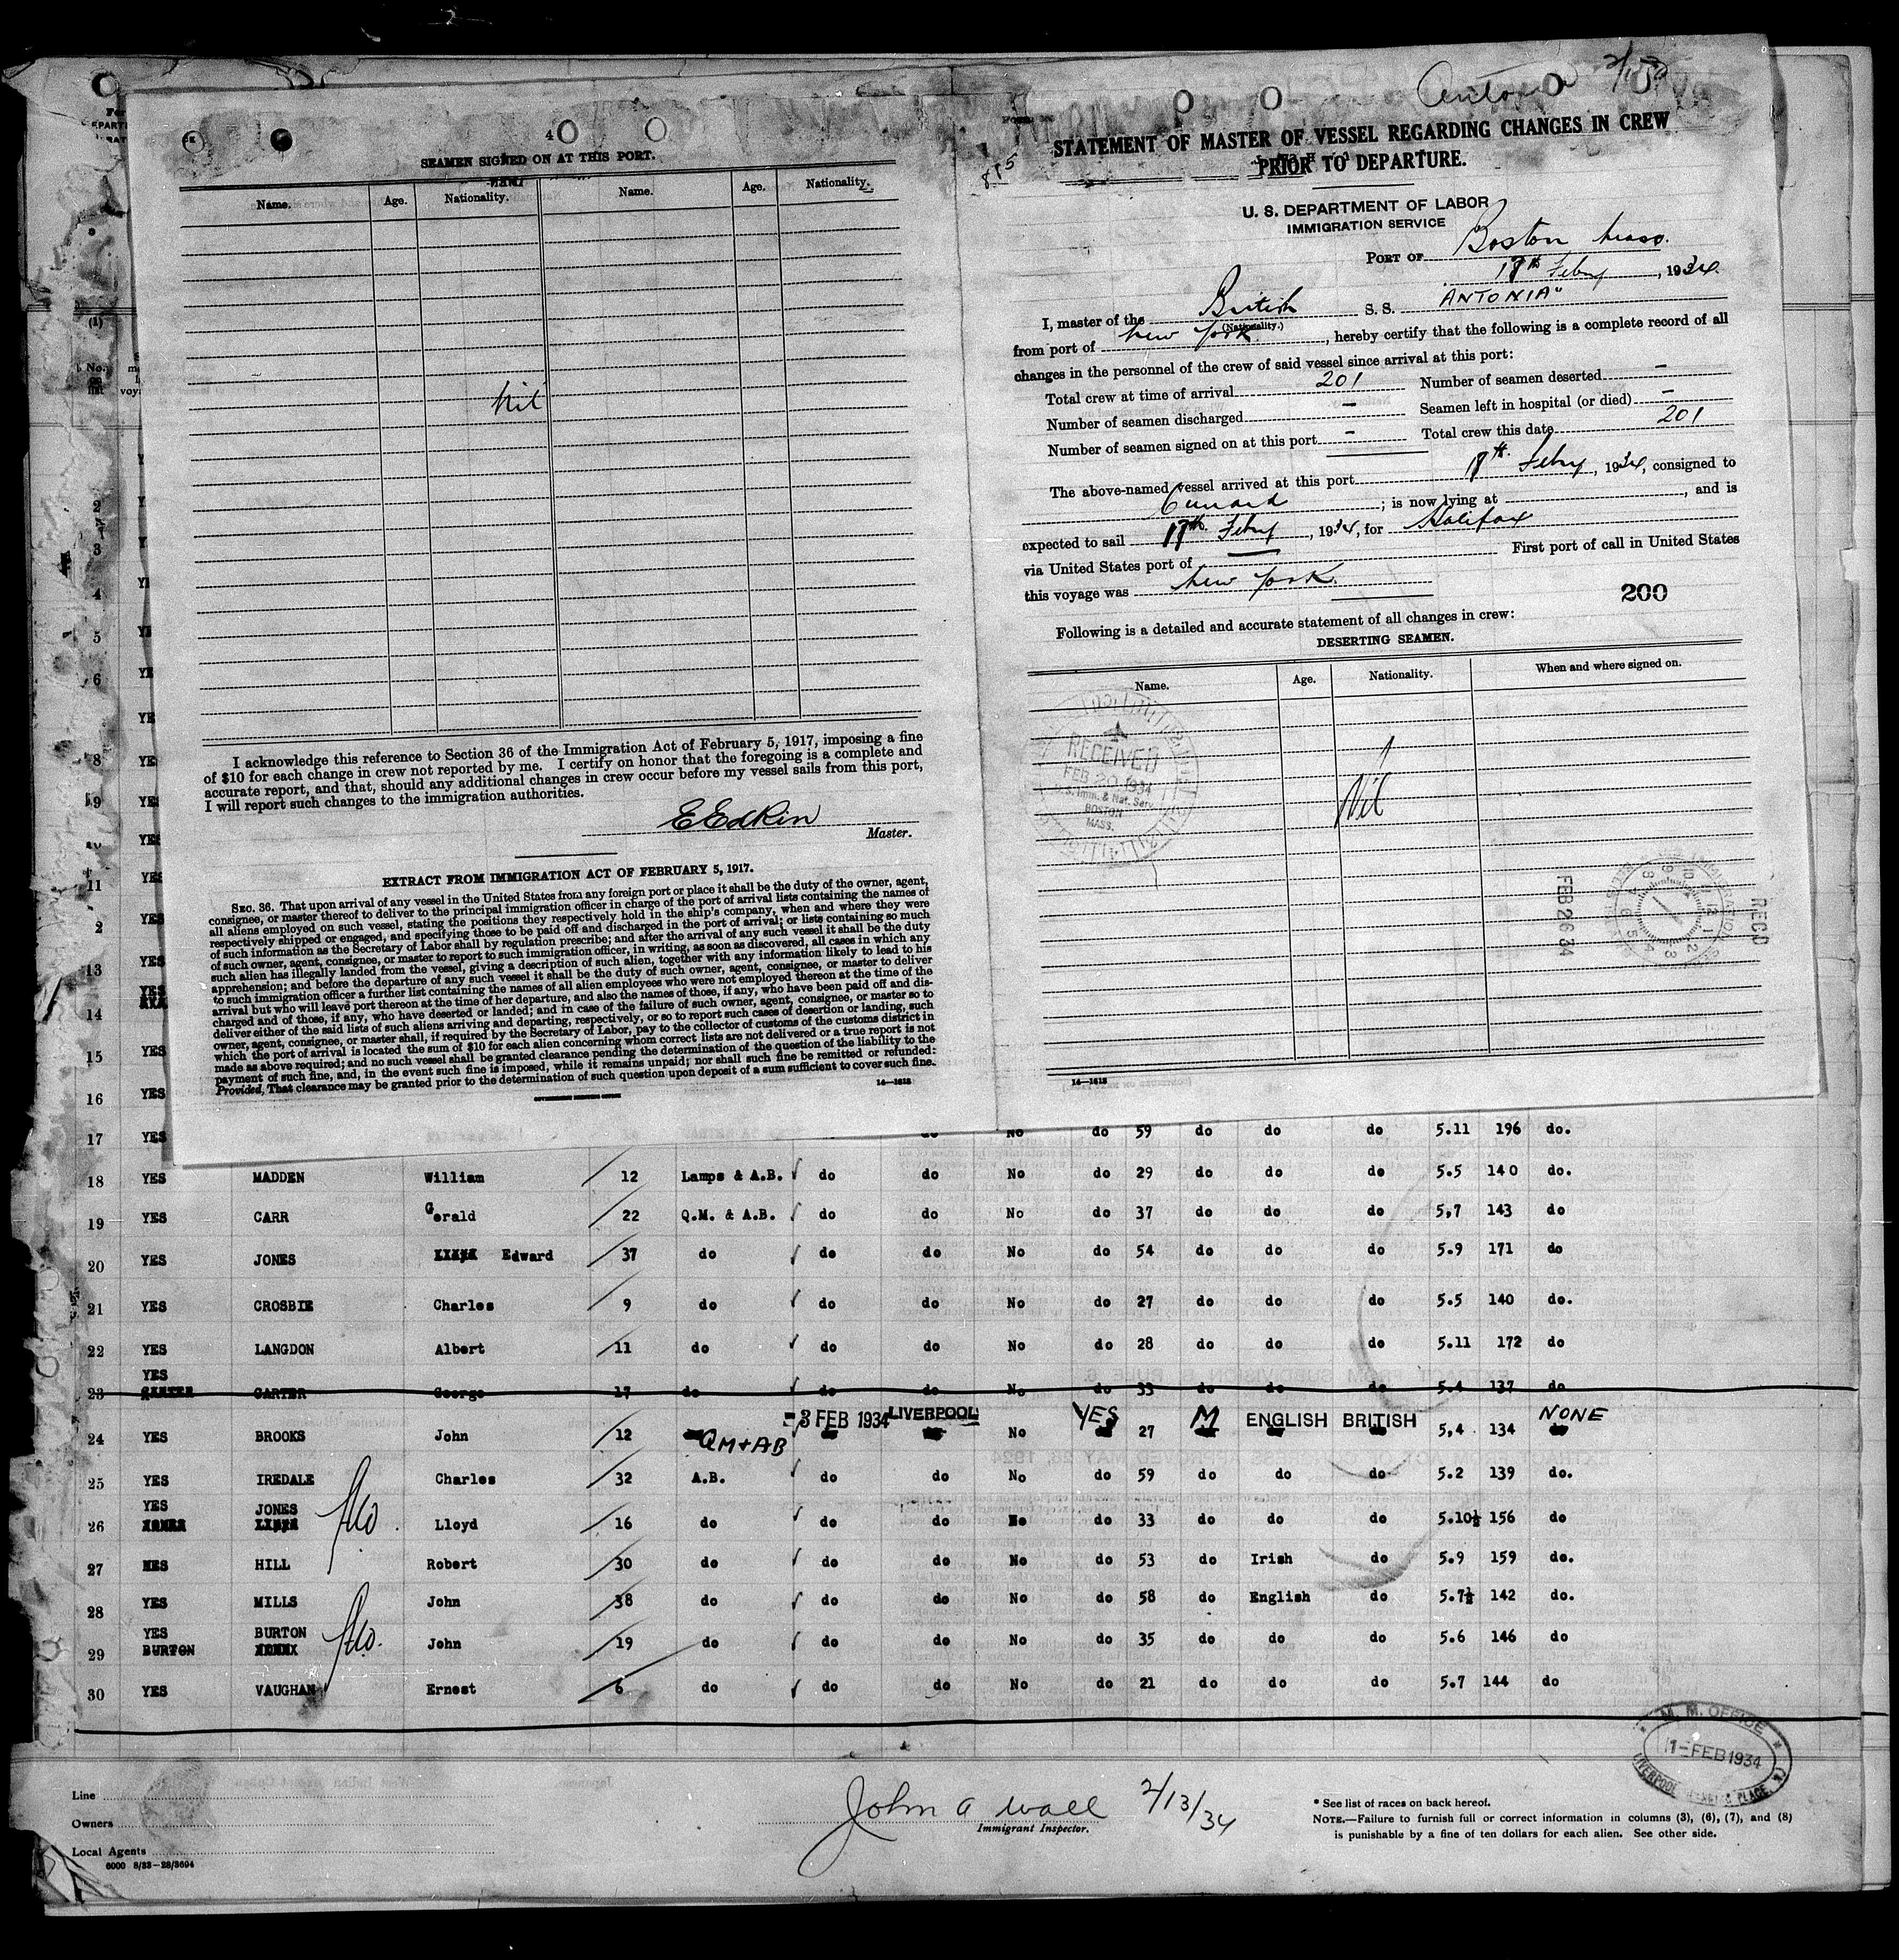 SEAMEN SIGNED ON AT THIS PORT.
Name. Age. Nationality. Name. Age. Nationality.
Nil
I acknowledge this reference to Section 36 of the Immigration Act of February 5, 1917, imposing a fine
of $10 for each change in crew not reported by me. I certify on honor that the foregoing is a complete and
accurate report, and that, should any additional changes in crew occur before my vessel sails from this port,
I will report such changes to the immigration authorities.
E Edkin
Master.
EXTRACT FROM IMMIGRATION ACT OF FEBRUARY 5, 1917.
SEC. 36. That upon arrival of any vessel in the United States from any foreign port or place it shall be the duty of the owner, agent,
consignee, or master thereof to deliver to the principal immigration officer in charge of the port of arrival lists containing the names of
all aliens employed on such vessel, stating the positions they respectively hold in the ship's company, when and where they were
respectively shipped or engaged, and specifying those to be paid off and discharged in the port of arrival; or lists containing so much
of such information as the Secretary of Labor shall by regulation prescribe; and after the arrival of any such vessel it shall be the duty
of such owner, agent, consignee, or master to report to such immigration officer, in writing, as soon as discovered, all cases in which any
such alien has illegally landed from the vessel, giving a description of such alien, together with any information likely to lead to his
apprehension; and before the departure of any such vessel it shall be the duty of such owner, agent, consignee, or master to deliver
to such immigration officer a further list containing the names of all alien employees who were not employed thereon at the time of the
arrival but who will leave port thereon at the time of her departure, and also the names of those, if any, who have been paid off and dis-
charged and of those, if any, who have deserted or landed; and in case of the failure of such owner, agent, consignee, or master so to
deliver either of the said lists of such aliens arriving and departing, respectively, or so to report such cases of desertion or landing, such
owner, agent, consignee, or master shall, if required by the Secretary of Labor, pay to the collector of customs of the customs district in
which the port of arrival is located the sum of $10 for each alien concerning whom correct lists are not delivered or a true report is not
made as above required; and no such vessel shall be granted clearance pending the determination of the question of the liability to the
payment of such fine, and, in the event such fine is imposed, while it remains unpaid; nor shall such fine be remitted or refunded:
Provided, That clearance may be granted prior to the determination of such question upon deposit of a sum sufficient to cover such fine.
14—1613
Antonia
885
STATEMENT OF MASTER OF VESSEL REGARDING CHANGES IN CREW
PRIOR TO DEPARTURE.
U. S. DEPARTMENT OF LABOR
IMMIGRATION SERVICE
PORT OF Boston Mass.
18th Feby, 1934
I, master of the British S. S. ANTONIA"
(Nationality.)
from port of New York, hereby certify that the following is a complete record of all
changes in the personnel of the crew of said vessel since arrival at this port:
Total crew at time of arrival 201 Number of seamen deserted -
Number of seamen discharged - Seamen left in hospital (or died) -
Number of seamen signed on at this port - Total crew this date 201
The above-named vessel arrived at this port 18th Feby, 1934, consigned to
Cunard ; is now lying at , and is
expected to sail 18th Feby, 1934, for Halifax
via United States port of First port of call in United States
this voyage was New York.
200
Following is a detailed and accurate statement of all changes in crew:
DESERTING SEAMEN.
Name. Age. Nationality. When and where signed on.
Nil
RECEIVED
FEB 20 1934
U.S. Imm. & Nat. Serv.
BOSTON
MASS.
RECD
FEB 26 34
14—1613
17 YES do No do 59 do do do 5.11 196 do.
18 YES MADDEN William 12 Lamps & A.B. do do No do 29 do do do 5.5 140 do.
19 YES CARR Gerald 22 Q.M. & A.B. do do No do 37 do do do 5.7 143 do
20 YES JONES Edward 37 do do do No do 54 do do do 5.9 171 do
21 YES CROSBIE Charles 9 do do do No do 27 do do do 5.5 140 do.
22 YES LANGDON Albert 11 do do do No do 28 do do do 5.11 172 do
23 YES CARTER George 17 do do do No do 33 do do do 5.4 137 do
24 YES BROOKS John 12 QM+AB -3 FEB 1934 LIVERPOOL No YES 27 M ENGLISH BRITISH 5,4 134 NONE
25 YES IREDALE Charles 32 A.B. do do No do 59 do do do 5.2 139 do.
26 YES JONES Lloyd 16 do do do No do 33 do do do 5.10½ 156 do
27 HILL Robert 30 do do do No do 53 do Irish do 5.9 159 do.
28 YES MILLS John 38 do do do No do 58 do English do 5.7½ 142 do.
29 YES BURTON John 19 do do do No do 35 do do do 5.6 146 do
30 YES VAUGHAN Ernest 6 do do do No do 21 do do do 5.7 144 do
M. M. OFFICE
1-FEB 1934
LIVERPOOL
Line
Owners
Local Agents
6000 8/33—28/3694
John A Wall 2/13/34
Immigrant Inspector.
* See list of races on back hereof.
NOTE.—Failure to furnish full or correct information in columns (3), (6), (7), and (8)
is punishable by a fine of ten dollars for each alien. See other side.